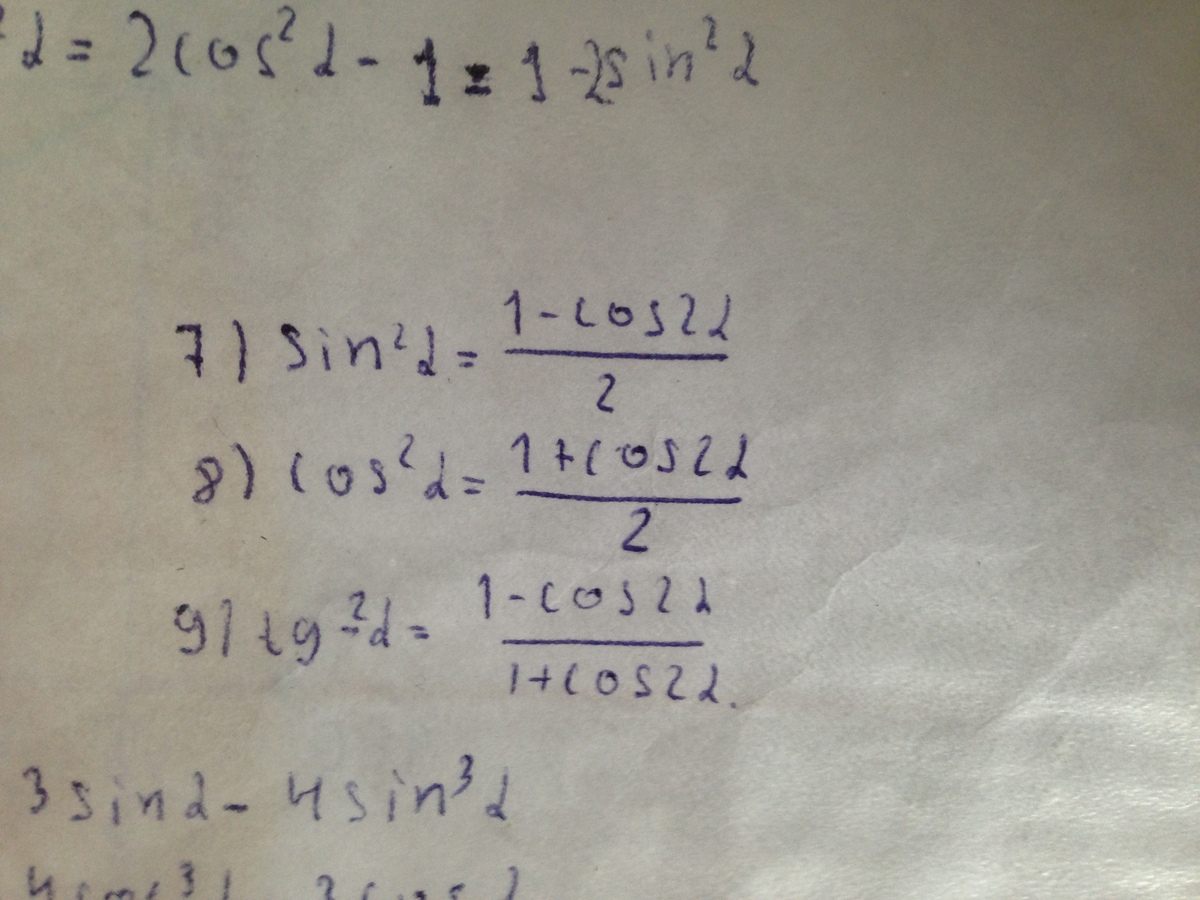 ²α = 2cos²α - 1 = 1 - 2sin²α
7) sin²α = (1 - cos2α)/2
8) cos²α = (1 + cos2α)/2
9) tg²α = (1 - cos2α)/(1 + cos2α).
3sinα - 4sin³α
4cos³α - 3cosα